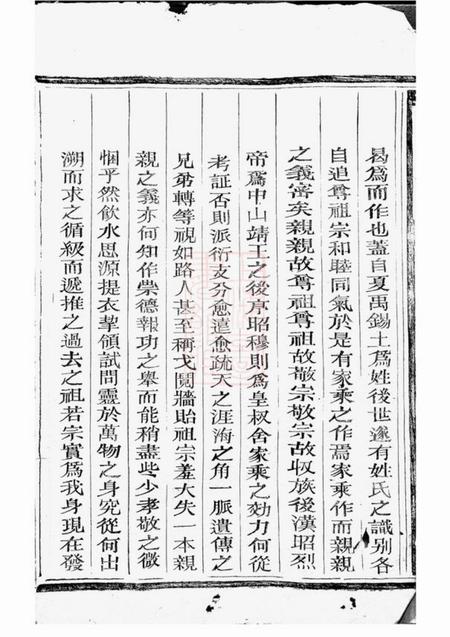 曷爲而作也蓋自夏禹錫土爲姓後世遂有姓氏之識别各
自追尊祖宗和睦同氣於是有家乘之作焉家乘作而親親
之義審矣親親故尊祖尊祖故敬宗敬宗故収族後漢昭烈
帝爲中山靖王之後序昭穆則爲皇叔舍家乘之効力何從
考証否則派衍支分愈遠愈疏天之涯海之角一脈遺傳之
兄弟轉等視如路人甚至稱戈鬩牆貽祖宗羞大失一本親
親之義亦何知作崇德報功之舉而能稍盡些少孝敬之微
悃乎然飲水思源提衣挈領試問靈於萬物之身究從何出
溯而求之循級而遞推之過去之祖若宗實爲我身現在發